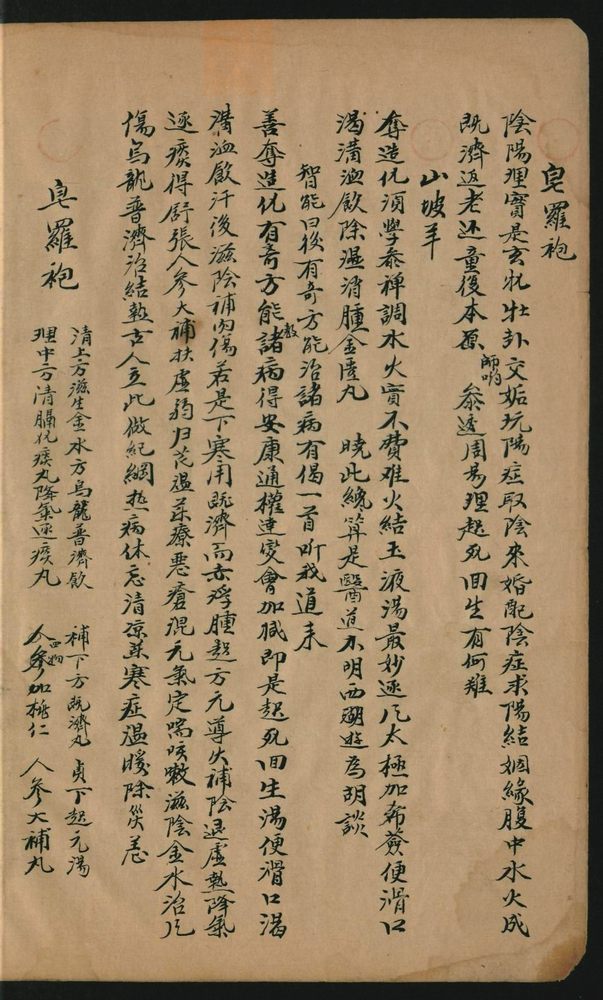 皂羅袍
陰陽理實是玄牝牡卦交姤玩陽症取陰來婚配陰症求陽結姻緣腹中水火成
既濟返老还童復本原師的參透周易理起死回生有何難
山坡羊
奪造化須學參禪調水火實不費难火結玉液湯最妙逐瓦太極加希薟便滑口
渴清血飲除濕消腫金匱丸 曉此總算是醫道不明西瑚遊為胡談
智能曰後有奇方能治諸病有偈一首听我道来
善奪造化有奇方能教諸病得安康通權達变會加減即是起死回生湯便滑口渴
清血飲汗後滋陰補內傷若是下寒用既濟而赤浮腫起方元導火補陰退虛熱降氣
逐痰得舒張人參大補扶虛弱归芪温菜療惡瘡混元氣定喘咳嗽滋陰金水治瓦
傷烏龍普濟治結熱古人立此做紀綱热病休忘清凉菜寒症温暖除災恙
皂羅袍
清上方滋生金水方烏龍普濟飲
理中方清膈化痰丸降氣逐痰丸
補下方既濟丸 貞下起元湯
人參四物加桃仁 人參大補丸